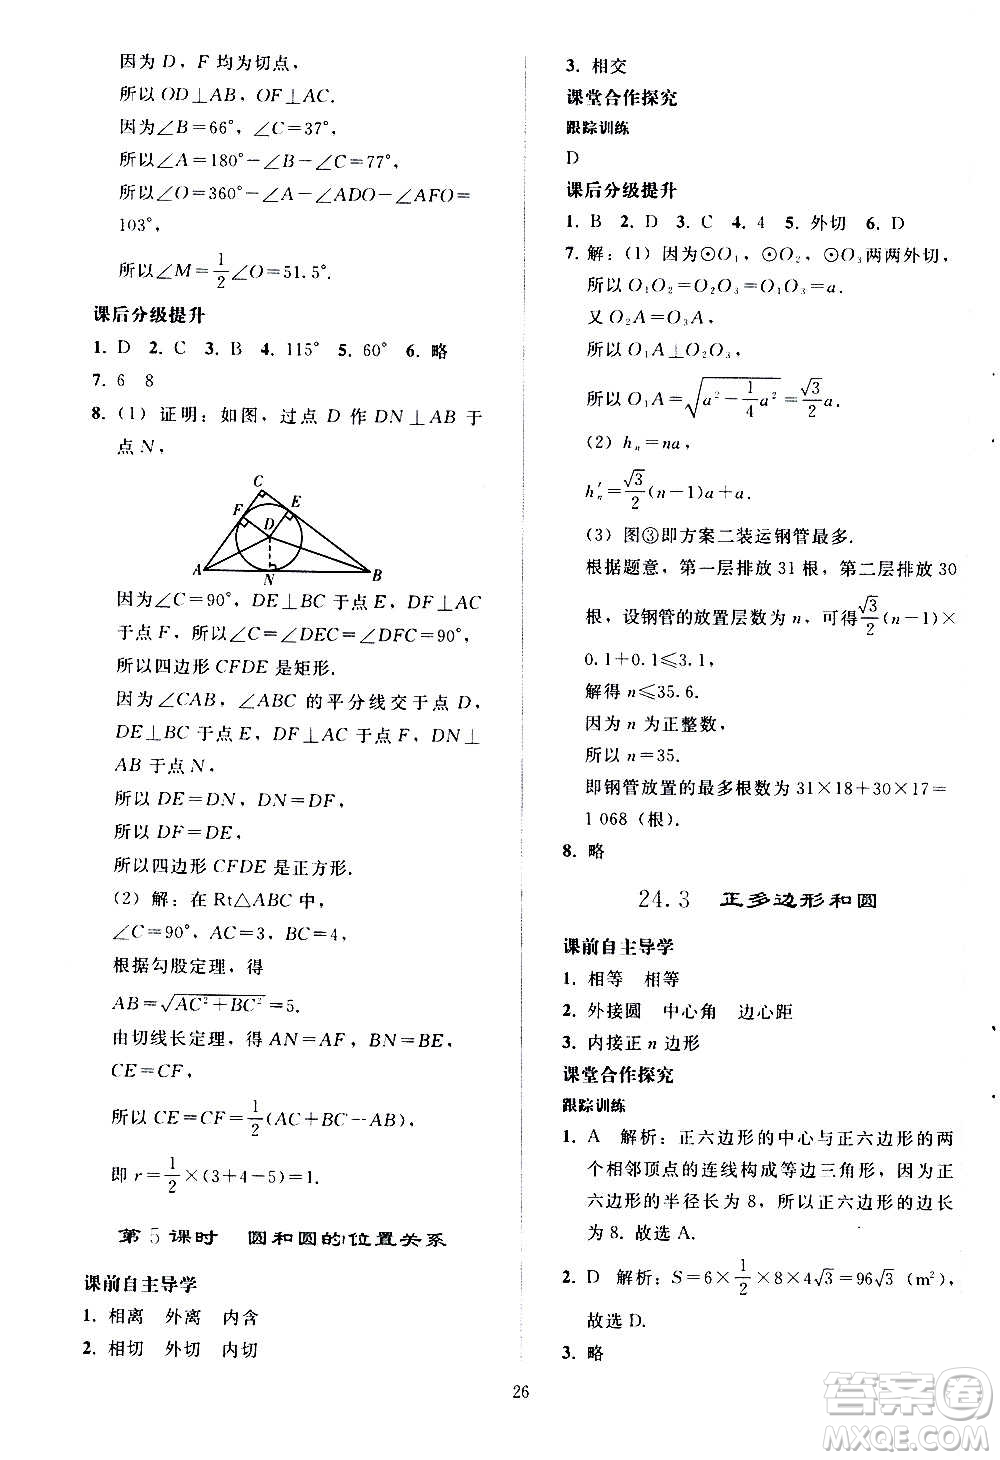 因为 D，F 均为切点，
所以 OD⊥AB，OF⊥AC.
因为∠B＝66°，∠C＝37°，
所以∠A＝180°－∠B－∠C＝77°，
所以∠O＝360°－∠A－∠ADO－∠AFO＝
103°，
所以∠M＝1/2∠O＝51.5°.
课后分级提升
1. D 2. C 3. B 4. 115° 5. 60° 6. 略
7. 6 8
8.（1）证明：如图，过点 D 作 DN⊥AB 于
点 N，
C
F E
D
A N B
因为∠C＝90°，DE⊥BC 于点 E，DF⊥AC
于点 F，所以∠C＝∠DEC＝∠DFC＝90°，
所以四边形 CFDE 是矩形.
因为∠CAB，∠ABC 的平分线交于点 D，
DE⊥BC 于点 E，DF⊥AC 于点 F，DN⊥
AB 于点 N，
所以 DE＝DN，DN＝DF，
所以 DF＝DE，
所以四边形 CFDE 是正方形.
（2）解：在 Rt△ABC 中，
∠C＝90°，AC＝3，BC＝4，
根据勾股定理，得
AB＝√(AC²＋BC²)＝5.
由切线长定理，得 AN＝AF，BN＝BE，
CE＝CF，
所以 CE＝CF＝1/2(AC＋BC－AB)，
即 r＝1/2×(3＋4－5)＝1.
第 5 课时 圆和圆的位置关系
课前自主导学
1. 相离 外离 内含
2. 相切 外切 内切
3. 相交
课堂合作探究
跟踪训练
D
课后分级提升
1. B 2. D 3. C 4. 4 5. 外切 6. D
7. 解：（1）因为⊙O₁，⊙O₂，⊙O₃两两外切，
所以 O₁O₂＝O₂O₃＝O₁O₃＝a.
又 O₂A＝O₃A，
所以 O₁A⊥O₂O₃，
所以 O₁A＝√(a²－1/4a²)＝√3/2a.
（2）hₙ＝na，
h′ₙ＝√3/2(n－1)a＋a.
（3）图③即方案二装运钢管最多.
根据题意，第一层排放 31 根，第二层排放 30
根，设钢管的放置层数为 n，可得√3/2(n－1)×
0.1＋0.1≤3.1，
解得 n≤35.6.
因为 n 为正整数，
所以 n＝35.
即钢管放置的最多根数为 31×18＋30×17＝
1 068（根）.
8. 略
24.3 正多边形和圆
课前自主导学
1. 相等 相等
2. 外接圆 中心角 边心距
3. 内接正 n 边形
课堂合作探究
跟踪训练
1. A 解析：正六边形的中心与正六边形的两
个相邻顶点的连线构成等边三角形，因为正
六边形的半径长为 8，所以正六边形的边长
为 8. 故选 A.
2. D 解析：S＝6×1/2×8×4√3＝96√3（m²），
故选 D.
3. 略
26
答案圈
MXQE.COM